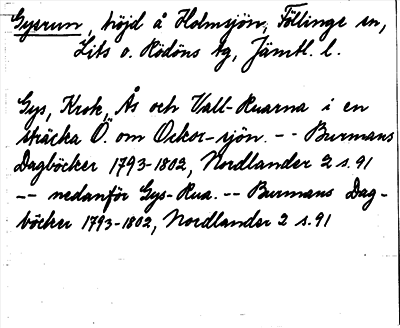 Gysrun, höjd å Holmsjön, Föllinge sn,
Lits o. Rödöns tg, Jämtl. l.
Gys, Krok, Ås och Vall-Ruarna i en
sträcka Ö. om Ockor-sjön. -- Burmans
Dagböcker 1793-1802, Nordlander 2 s. 91
-- nedanför Gys-Rua. -- Burmans Dag-
böcker 1793-1802, Nordlander 2 s. 91